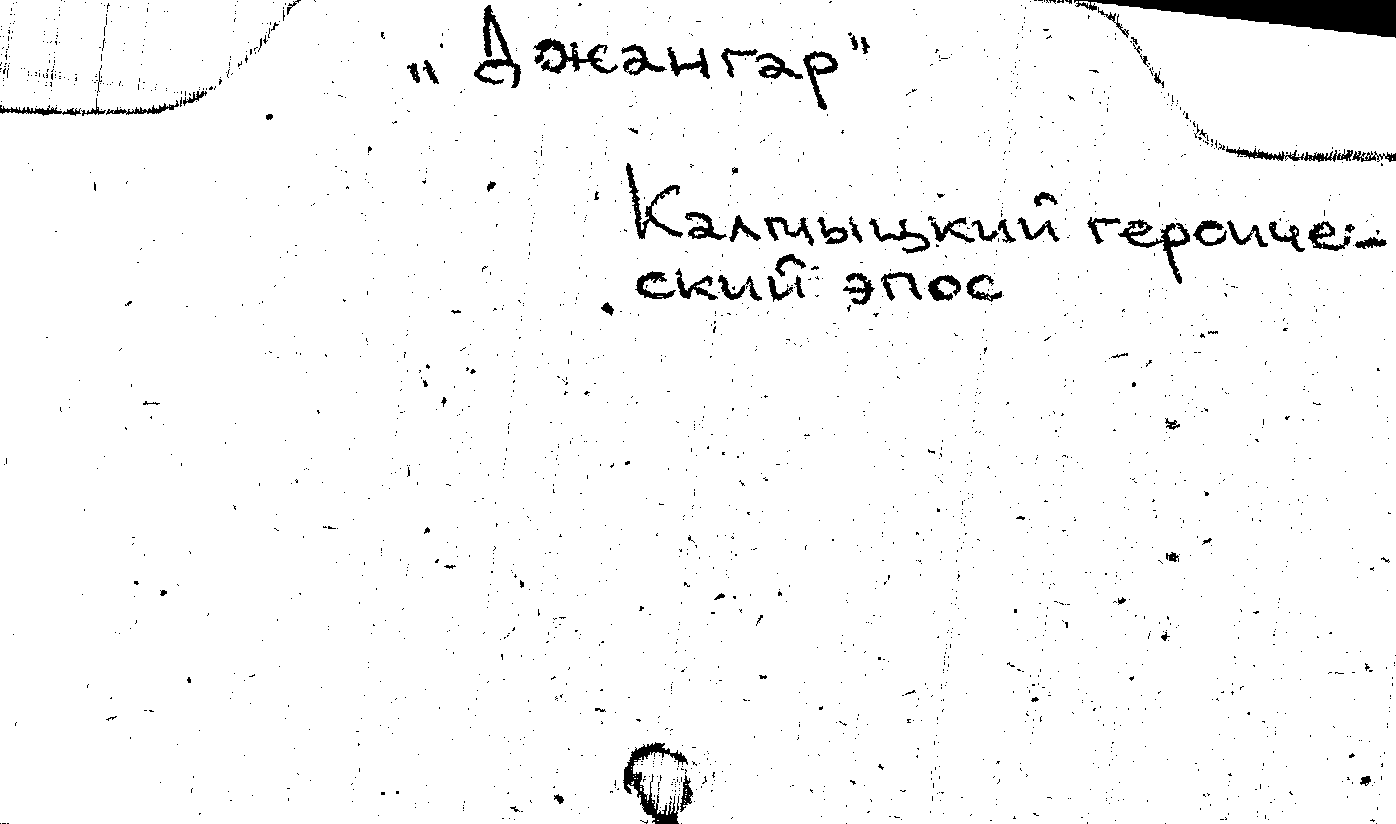 „Джангар"
Калмыцкий героиче-
ский эпос